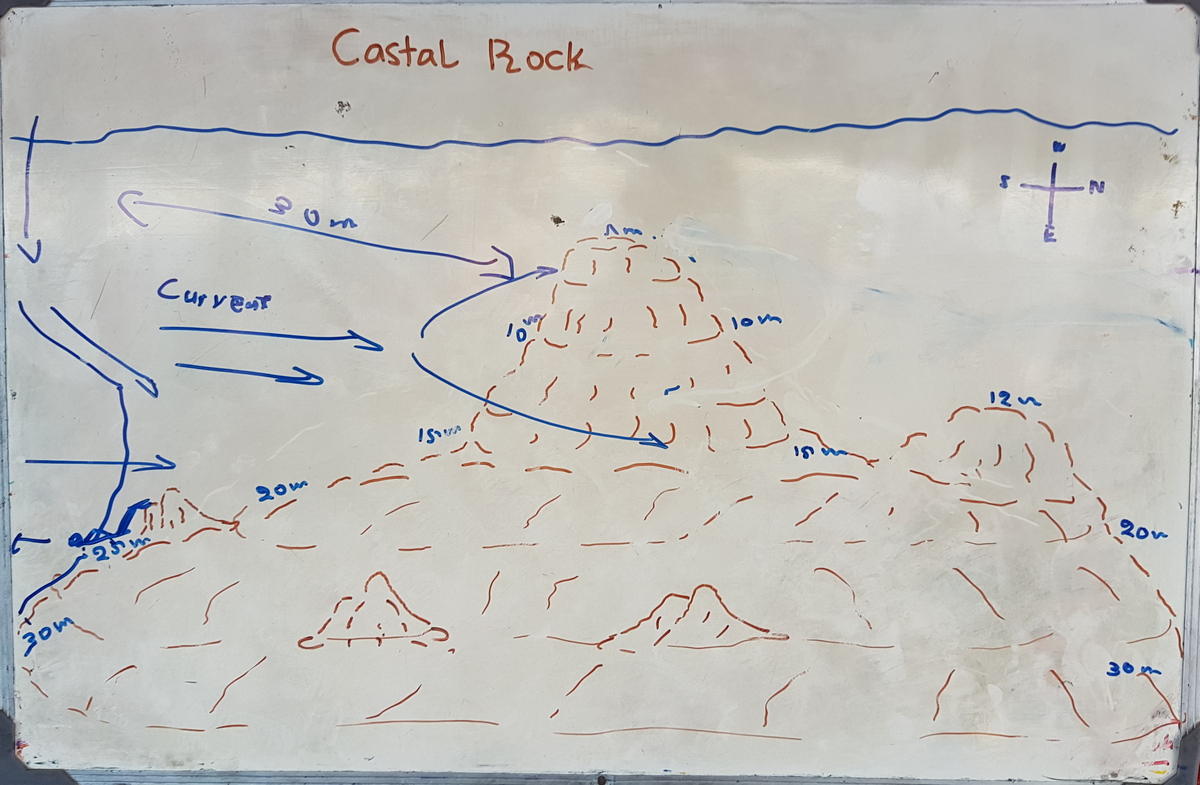 Castal Rock
W
S N
E
30m
Current
10m
10m
12m
15m
15m
20m
20m
25m
30m
30m